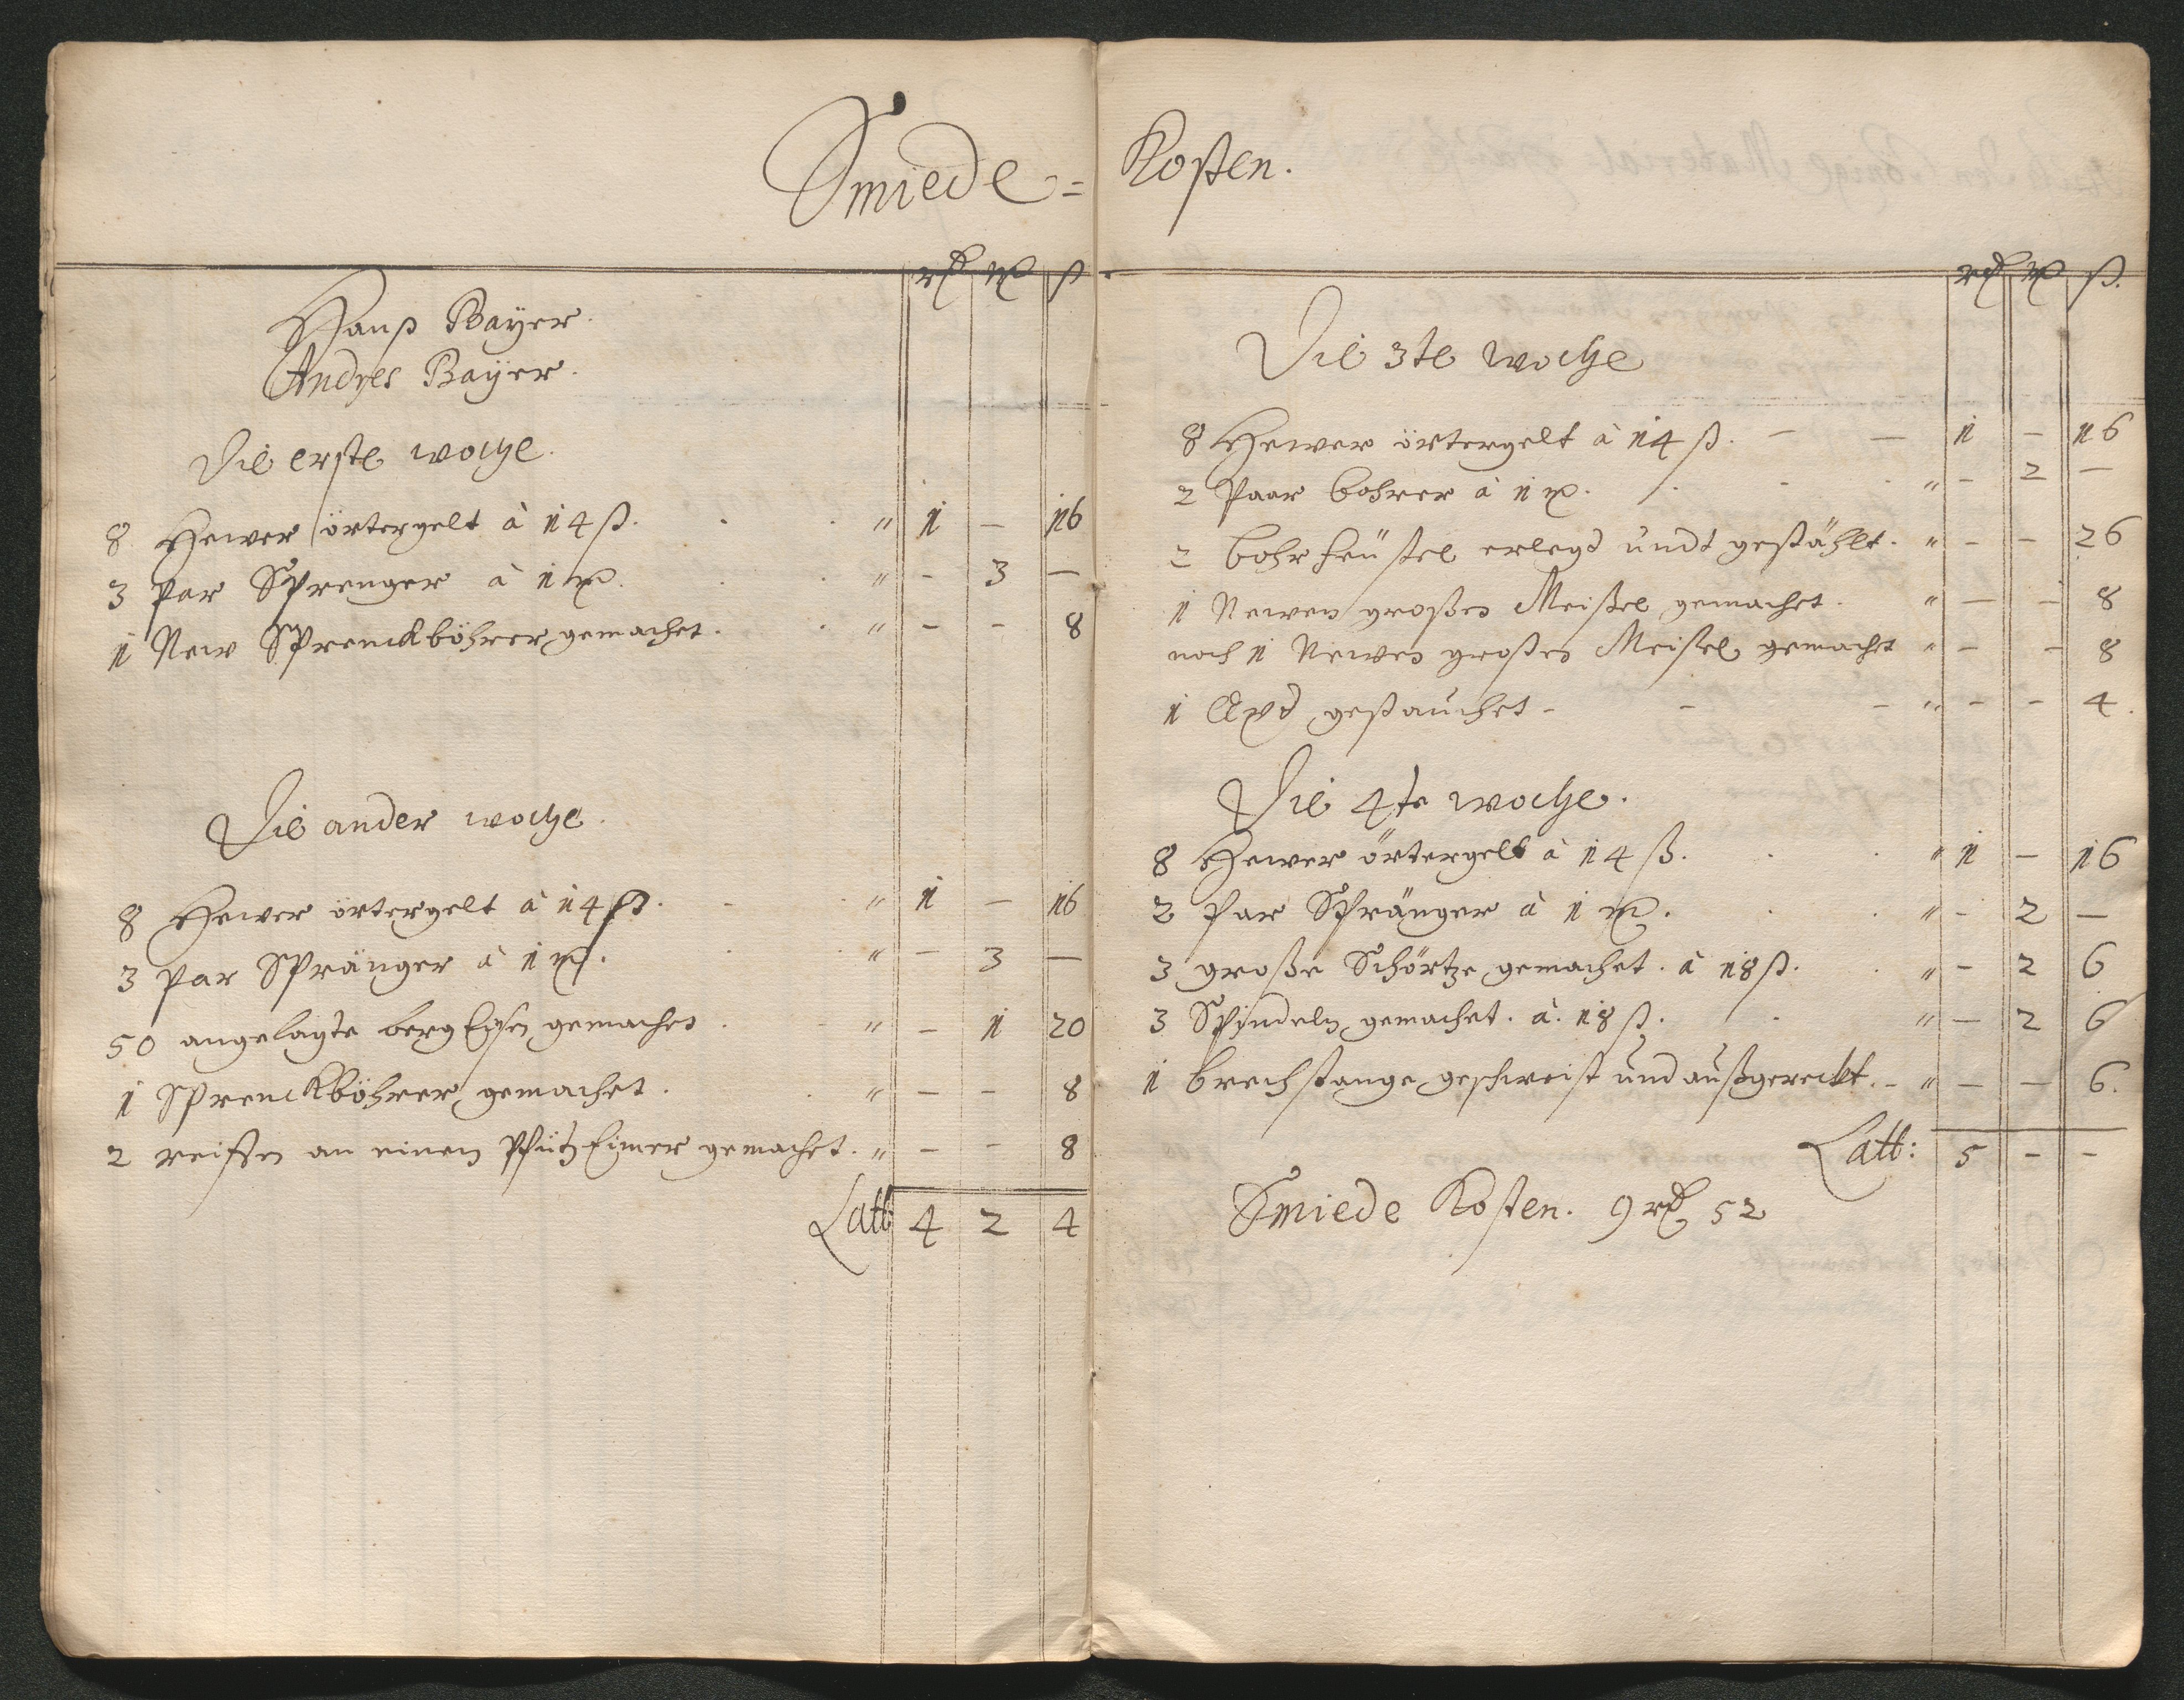 Smiede=Kosten.
rd m ß
Hanß Bayer.
Andres Bayer.
Die erste woche.
8 Hewer örtergelt à 14 ß. " 1 – 16
3 Par Sprenger à 1 m. " – 3 –
1 New Sprenckböhrer gemachet. " – – 8
Die ander woche.
8 Hewer örtergelt à 14 ß. " 1 – 16
3 Par Spränger à 1 m. " – 3 –
50 angelagte berg Eysen gemachet " – 1 20
1 Sprenckböhrer gemachet. " – – 8
2 reiffen an einen Pfütz Eimer gemachet. " – – 8
Latt: 4 2 4
rd m ß.
Die 3te woche
8 Hewer örtergelt à 14 ß. – – 1 – 16
2 Paar bohrer à 1 m. " – 2 –
2 bohr feüstel erlegd undt gestählt. " – – 26
1 Newen großes Meißel gemachet. " – – 8
noch 1 Newes großes Meißel gemacht " – – 8
1 Axd gestauchet – – – " – – 4.
Die 4te woche.
8 Hewer örtergelt à 14 ß. " 1 – 16
2 Par Spränger à 1 m. " – 2 –
3 große Schörtze gemachet. à 18 ß. " – 2 6
3 Spindeln gemachet. à. 18 ß. " – 2 6
1 brechstange geschweist und außgereckt. – " – – 6.
Latt: 5 – –
Smiede Kosten. 9 rd 52